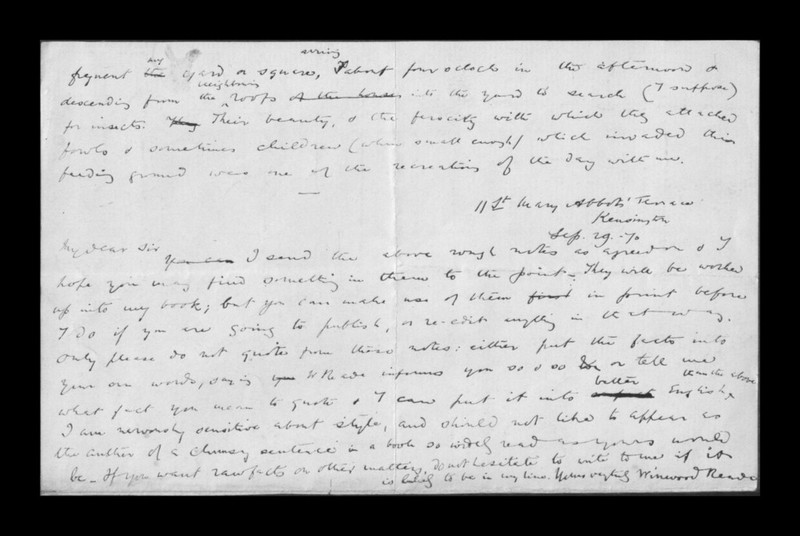 my arriving
frequent the yard or square, about four oclock in the afternoon &
neighboring
descending from the roofs of the houses into the yard to search (I suppose)
for insects. They Their beauty, & the ferocity with which they attacked
fowls & sometimes children (when small enough) which invaded their
feeding ground was one of the recreations of the day with me.
11 St Mary Abbots' Terrace
Kensington
Sep. 29. 70
My dear Sir
I send the above rough notes as agreed on & I
hope you may find something in them to the point. They will be worked
up into my book; but you can make use of them first in print before
I do if you are going to publish, or re-edit anything in that way.
Only please do not quote from these notes: either put the facts into
your own words, saying W Reade informs you so & so or tell me
better than the above
what fact you mean to quote & I can put it into English.
I am nervously sensitive about style, and should not like to appear as
the author of a clumsy sentence in a book so widely read as yours would
be – If you want raw facts on other matters, do not hesitate to write to me if it
is likely to be in my line. Yours very truly Winwood Reade